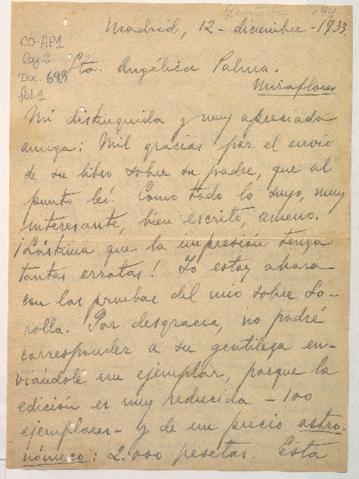 Madrid, 12-diciembre-1933
CO-AP1
Caj-2
Doc. 693
fol. 1
Sta. Angélica Palma.
Miraflores
Mi distinguida y muy apreciada
amiga: Mil gracias por el envío
de su libro sobre su padre, que al
punto leí. Como todo lo suyo, muy
interesante, bien escrito, ameno.
¡Lástima que la impresión tenga
tantas erratas! Yo estoy ahora
con las pruebas del mío sobre So-
rolla. Por desgracia, no podré
corresponder a su gentileza en-
viándole un ejemplar, porque la
edición es muy reducida - 100
ejemplares - y de un precio astro-
nómico: 2.000 pesetas. Está